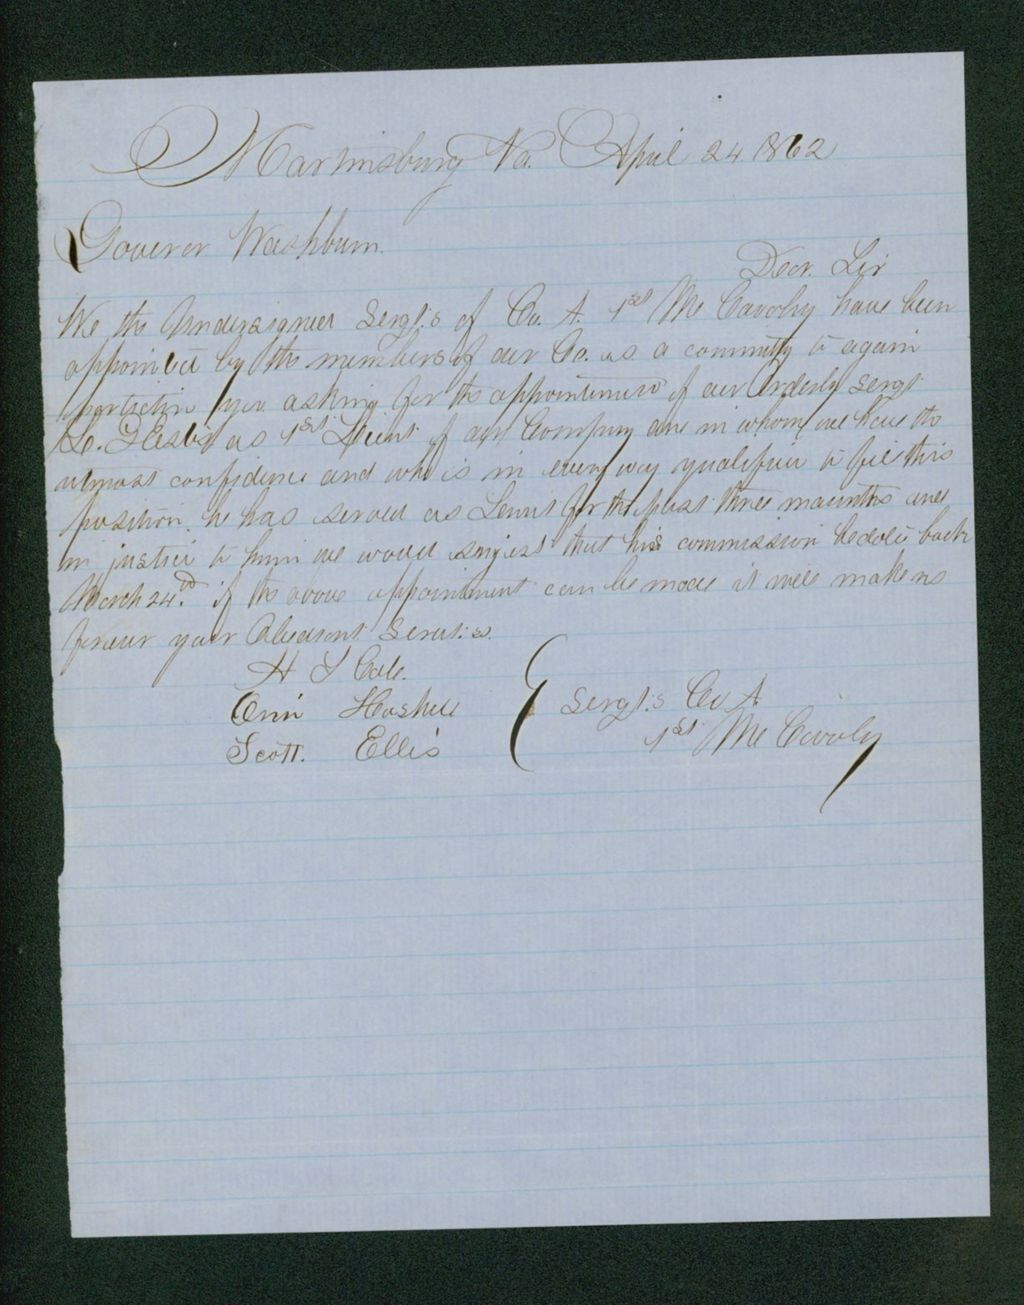 Martinsburg Va. April 24 1862
Goverer Washburn.
Dear. Sir
We the Undersigned Sergt.s of Co. A. 1st Me Cavalry have been
appointed by the members of our Co. as a committy to again
you asking for the appointment of our Orderly Sergt.
as 1st Lieut. of our Company one in whom we have the
utmost confidence and who is in every way qualified to fill this
position. he has served as Leiut for the past three maunths and
in justice to him we would sugjest that his commission be date back
March 24.th if the above appointment can be made it will make us
forever your Obedient Servt.s.
H S Cole.
Orin Haskell
Scott. Ellis
Sergt.s Co A
1st Me Cavaly